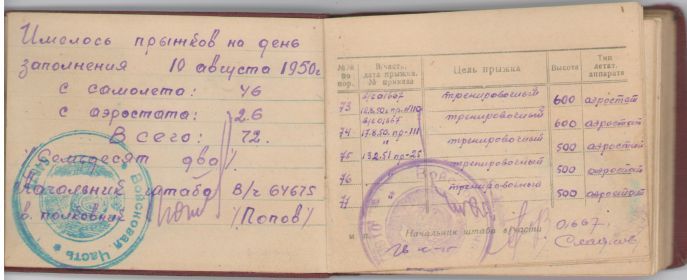 Имелось прыжков на день
заполнения 10 августа 1950г
с самолета: 46
с аэростата: 26
Всего: 72.
Семьдесят два
Начальник штаба в/ч 64675
п. полковник /Попов/
Войсковая Часть
№№ по пор. В/часть, дата прыжка, № приказа Цель прыжка Высота Тип летат. аппарата
73 тренировочный 600 аэростат
74 17.8.50. пр-111 тренировочный 600 аэростат
75 13.2.51 пр-25 тренировочный 500 аэростат
76 " тренировочный 500 аэростат
77 " тренировочный 500 аэростат
м. п. Начальник штаба в/части